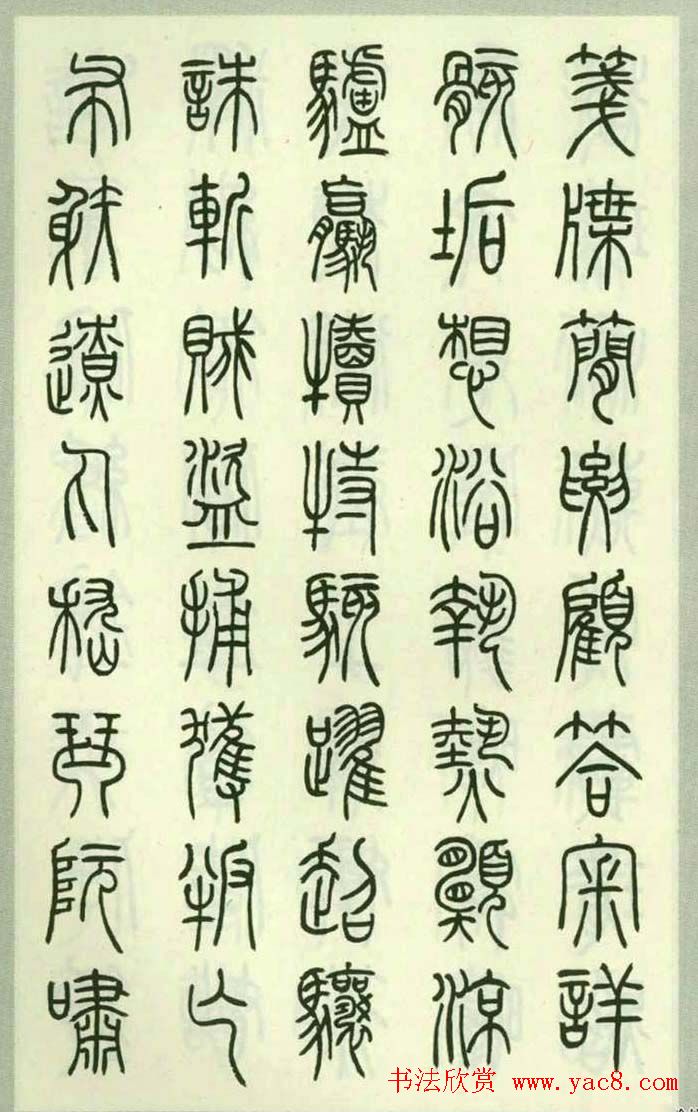 箋牒簡要顧答宷詳
骸垢想浴執熱願涼
驢騾犢特駭躍超驤
誅斬賊盜捕獲叛亡
布射遼丸嵇琴阮嘯
书法欣赏 www.yac8.com